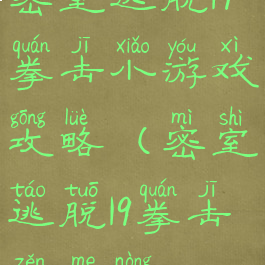 密室逃脱19
quán jī xiǎo yóu xì
拳击小游戏
gōng lüè mì shì
攻略(密室
táo tuō quán jī
逃脱19拳击
zěn me nòng